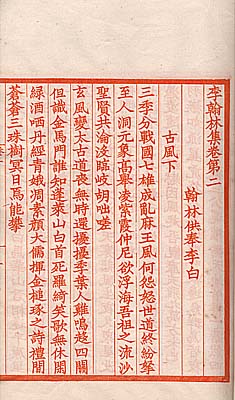 李翰林集卷第二
翰林供奉李白
古風下
三季分戰國七雄成亂麻王風何怨怒世道終紛拏
至人洞元象高舉凌紫霞仲尼欲浮海吾祖之流沙
聖賢共淪沒臨岐胡咄嗟
玄風變大古道喪無時還擾擾季葉人雞鳴趨四關
但識金馬門誰知蓬萊山白首死羅綺笑歌無休閑
綠酒哂丹經青娥凋素顏大儒揮金槌琢之詩禮間
蒼蒼三珠樹冥目焉能攀